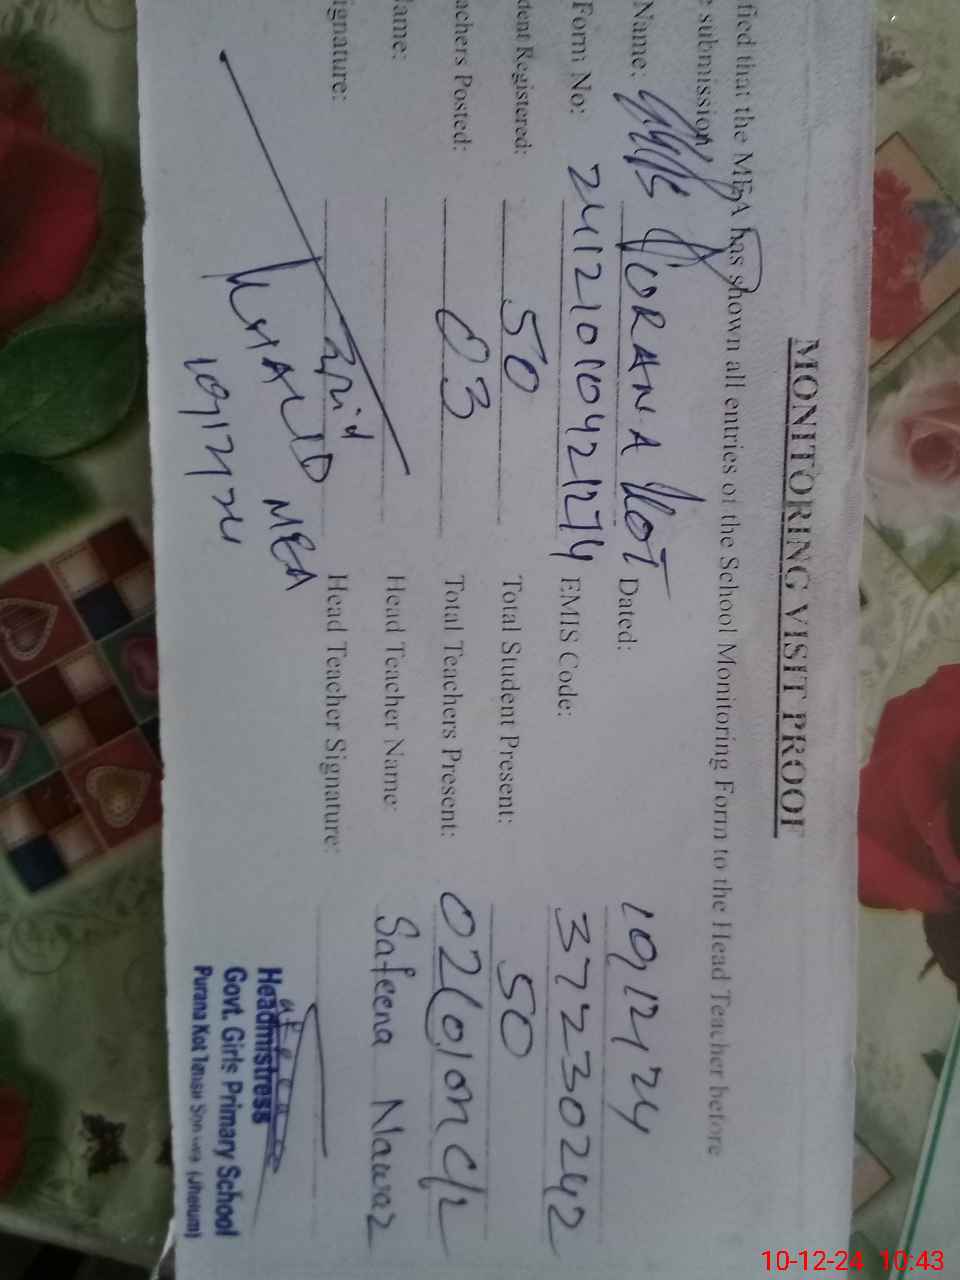 MONITORING VISIT PROOF
fied that the MEA has shown all entries of the School Monitoring Form to the Head Teacher before
submission
Name: GGPS PURANA KOT Dated: 10/12/24
Form No: EMIS Code: 37230242
dent Registered: 50 Total Student Present: 50
achers Posted: 03 Total Teachers Present: 02(01 on C/L
ame: Head Teacher Name: Safeena Nawaz
ignature: Head Teacher Signature:
KHALID MEA
10/12/24
Headmistress
Govt. Girls Primary School
Purana Kot (Jhelum)
10-12-24 10:43